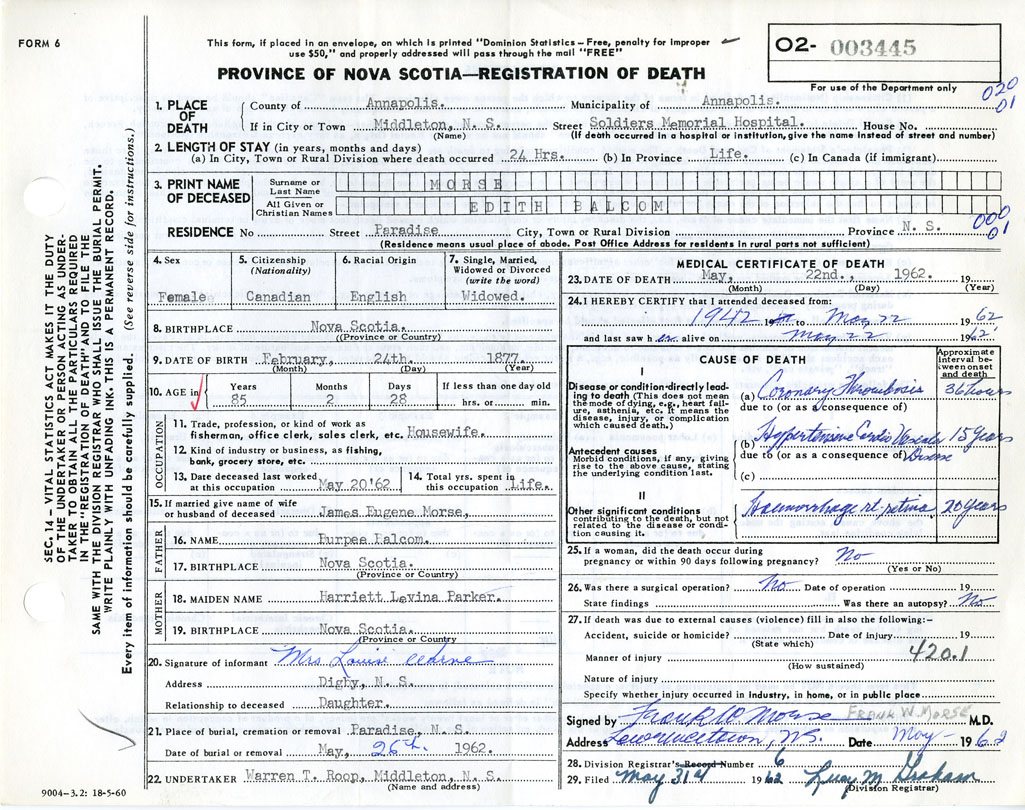 FORM 6
This form, if placed in an envelope, on which is printed "Dominion Statistics – Free, penalty for improper
use $50," and properly addressed will pass through the mail "FREE"
PROVINCE OF NOVA SCOTIA—REGISTRATION OF DEATH
02- 003445
For use of the Department only
020
01
SEC. 14 – VITAL STATISTICS ACT MAKES IT THE DUTY
OF THE UNDERTAKER OR PERSON ACTING AS UNDER-
TAKER TO OBTAIN ALL THE PARTICULARS REQUIRED
IN THE "REGISTRATION OF DEATH" AND TO FILE THE
SAME WITH THE DIVISION REGISTRAR WHO SHALL ISSUE THE BURIAL PERMIT.
WRITE PLAINLY WITH UNFADING INK-THIS IS A PERMANENT RECORD.
Every item of information should be carefully supplied. (See reverse side for instructions.)
1. PLACE OF DEATH
County of Annapolis. Municipality of Annapolis.
If in City or Town Middleton, N. S. Street Soldiers Memorial Hospital. House No.
(Name) (If death occurred in a hospital or institution, give the name instead of street and number)
2. LENGTH OF STAY (in years, months and days)
(a) In City, Town or Rural Division where death occurred 24 Hrs. (b) In Province Life. (c) In Canada (if immigrant)
3. PRINT NAME OF DECEASED
Surname or Last Name MORSE
All Given or Christian Names EDITH BALCOM
000
01
RESIDENCE No Street Paradise City, Town or Rural Division Province N. S.
(Residence means usual place of abode. Post Office Address for residents in rural parts not sufficient)
4. Sex
Female
5. Citizenship
(Nationality)
Canadian
6. Racial Origin
English
7. Single, Married,
Widowed or Divorced
(write the word)
Widowed.
8. BIRTHPLACE Nova Scotia.
((Province or Country)
9. DATE OF BIRTH February, 24th. 1877.
(Month) (Day) (Year)
10. AGE in
Years Months Days If less than one day old
85 2 28 hrs. or min.
OCCUPATION
11. Trade, profession, or kind of work as
fisherman, office clerk, sales clerk, etc. Housewife.
12. Kind of industry or business, as fishing,
bank, grocery store, etc.
13. Date deceased last worked
at this occupation May 20'62
14. Total yrs. spent in
this occupation Life.
15. If married give name of wife
or husband of deceased James Eugene Morse,
FATHER
16. NAME Purpee Balcom.
17. BIRTHPLACE Nova Scotia.
(Province or Country)
MOTHER
18. MAIDEN NAME Harriett Levina Parker.
19. BIRTHPLACE Nova Scotia.
(Province or Country
20. Signature of informant Mrs Louise
Address Digby, N. S.
Relationship to deceased Daughter.
21. Place of burial, cremation or removal Paradise, N. S.
Date of burial or removal May, 26th. 1962.
22. UNDERTAKER Warren T. Roop, Middleton, N. S.
(Name and address)
9004–3.2: 18-5-60
MEDICAL CERTIFICATE OF DEATH
23. DATE OF DEATH May, 22nd., 1962. 19
(Month) (Day) (Year)
24. I HEREBY CERTIFY that I attended deceased from:
1942 19 to May 22 1962
and last saw her alive on May 22 1962
CAUSE OF DEATH
Approximate
interval be-
tween onset
and death
I
Disease or condition directly lead-
ing to death (This does not mean
the mode of dying, e.g., heart fail-
ure, asthenia, etc. It means the
disease, injury, or complication
which caused death.)
(a) Coronary Thrombosis 36 hours
due to (or as a consequence of)
Antecedent causes
Morbid conditions, if any, giving
rise to the above cause, stating
the underlying condition last.
(b) Hypertensive Cardio Vascular Disease 15 years
due to (or as a consequence of)
(c)
II
Other significant conditions
contributing to the death, but not
related to the disease or condi-
tion causing it.
Haemorrhage rt retina 20 years
25. If a woman, did the death occur during
pregnancy or within 90 days following pregnancy? No
(Yes or No)
26. Was there a surgical operation? No Date of operation 19
State findings Was there an autopsy? No
27. If death was due to external causes (violence) fill in also the following:–
Accident, suicide or homicide? Date of injury 19
(State which)
Manner of injury 420.1
(How sustained)
Nature of injury
Specify whether injury occurred in industry, in home, or in public place
Signed by Frank W Morse FRANK W. MORSE M.D.
Address Lawrencetown, N.S. Date May – 1962
28. Division Registrar's Record Number 6
29. Filed May 31st 1962 Lucy M Graham
(Division Registrar)